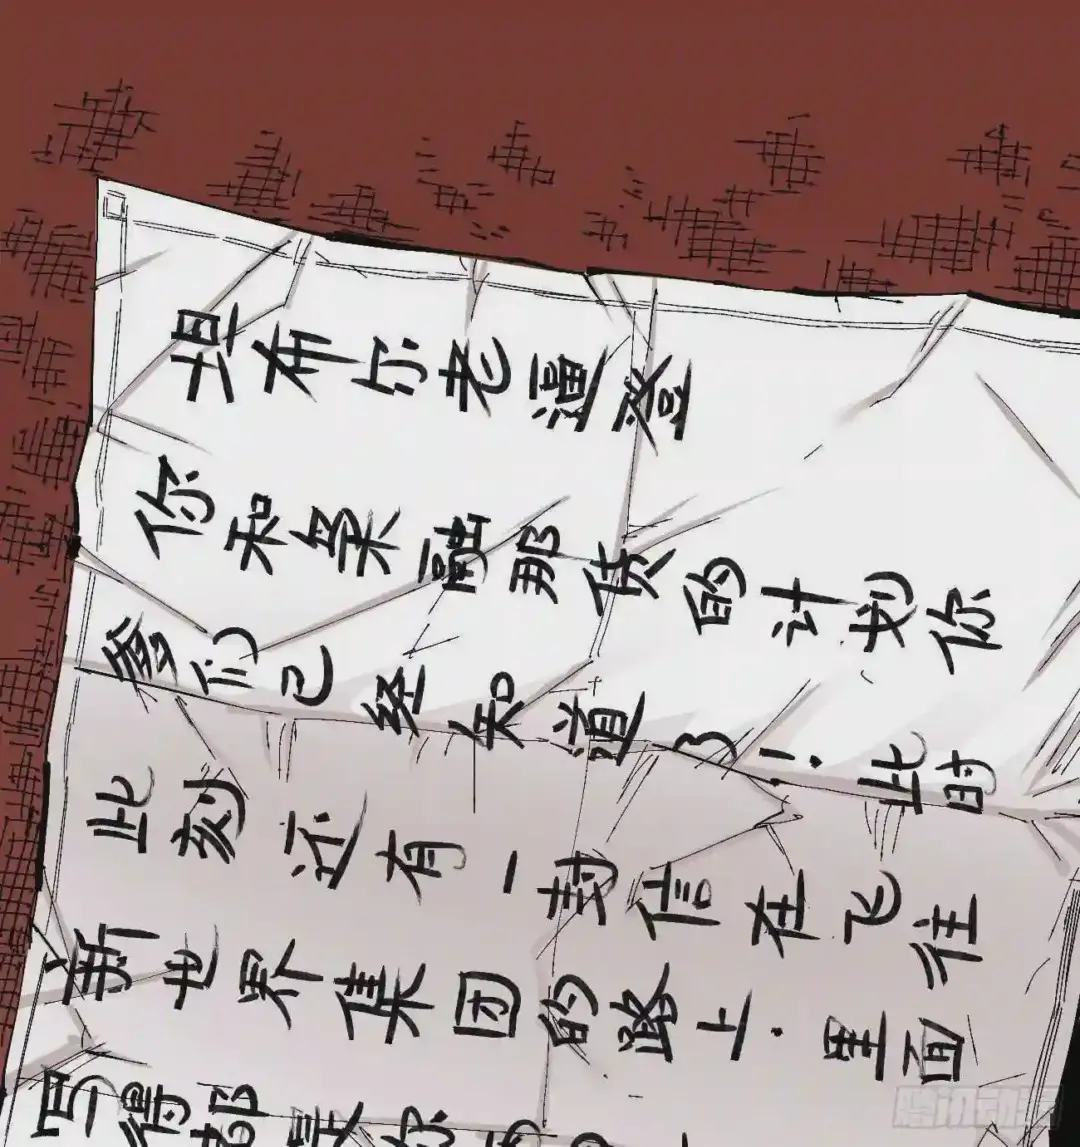 坦布尔老逼登
你和桑融那货的计划你
爹们已经知道了!此时
此刻还有一封信在飞往
新世界集团的路上.里面
写得都是你
腾讯动漫